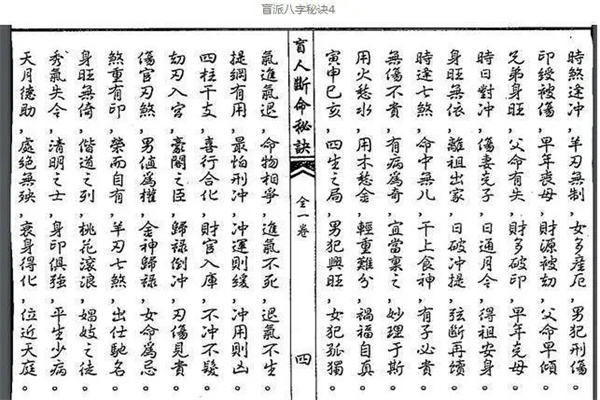 盲派八字秘诀4
時煞逢冲,羊刃無制,女多產厄,男犯刑傷。
印綬被傷,早年喪母,財源被劫,父命早傾。
兄弟身旺,父命有失,財多破印,早年尅母。
時日對冲,傷妻尅子,日通月令,得祖安身。
身旺無依,離祖出家,日破冲提,弦斷再續。
時逢七煞,命中無兒,干上食神,有子必貴。
無傷不貴,有病為奇,宜當稟之,妙理于斯。
用火愁水,用木愁金,輕重難分,禍福自真。
寅申巳亥,四生之局,男犯興旺,女犯孤獨。
盲人斷命秘訣 全一卷 四
氣進氣退,命物相爭,進氣不死,退氣不生。
提綱有用,最怕刑冲,冲運則緩,冲用則凶。
四柱干支,喜行合化,財官入庫,不冲不發。
劫刃入宮,臺閣之臣,歸祿倒冲,刃傷見貴。
傷官刃煞,男值為權,金神歸祿,女命為忌。
煞重有印,榮而自有,羊刃七煞,出仕馳名。
身旺無倚,偕道之列,桃花滾浪,娼妓之徒。
秀氣失令,清明之士,身印俱強,平生少病。
天月德助,處絕無殃,衰身得化,位近天庭。